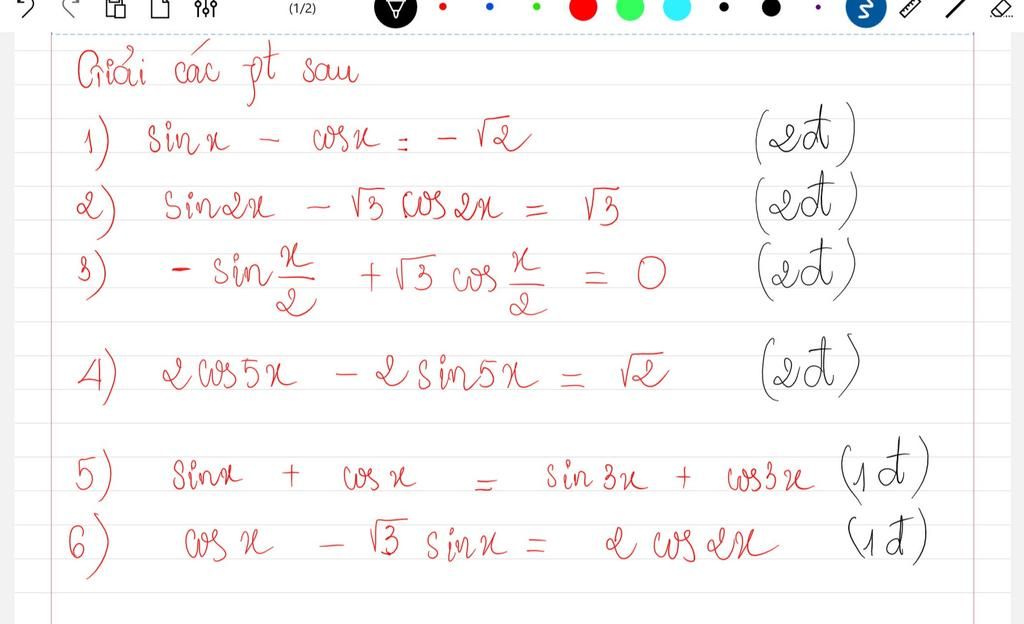 (1/2)
Giải các pt sau
1) sinx - cosx = -√2 (2đ)
2) sin2x - √3 cos2x = √3 (2đ)
3) - sin x/2 + √3 cos x/2 = 0 (2đ)
4) 2cos5x - 2sin5x = √2 (2đ)
5) sinx + cosx = sin3x + cos3x (1đ)
6) cosx - √3 sinx = 2cos2x (1đ)